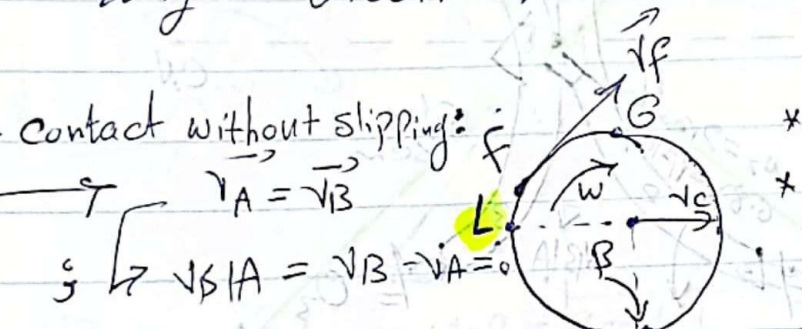 Contact without slipping:
VA = VB
VB/A = VB - VA = 0
Vf
G
f
*
w
Vc
*
L
B